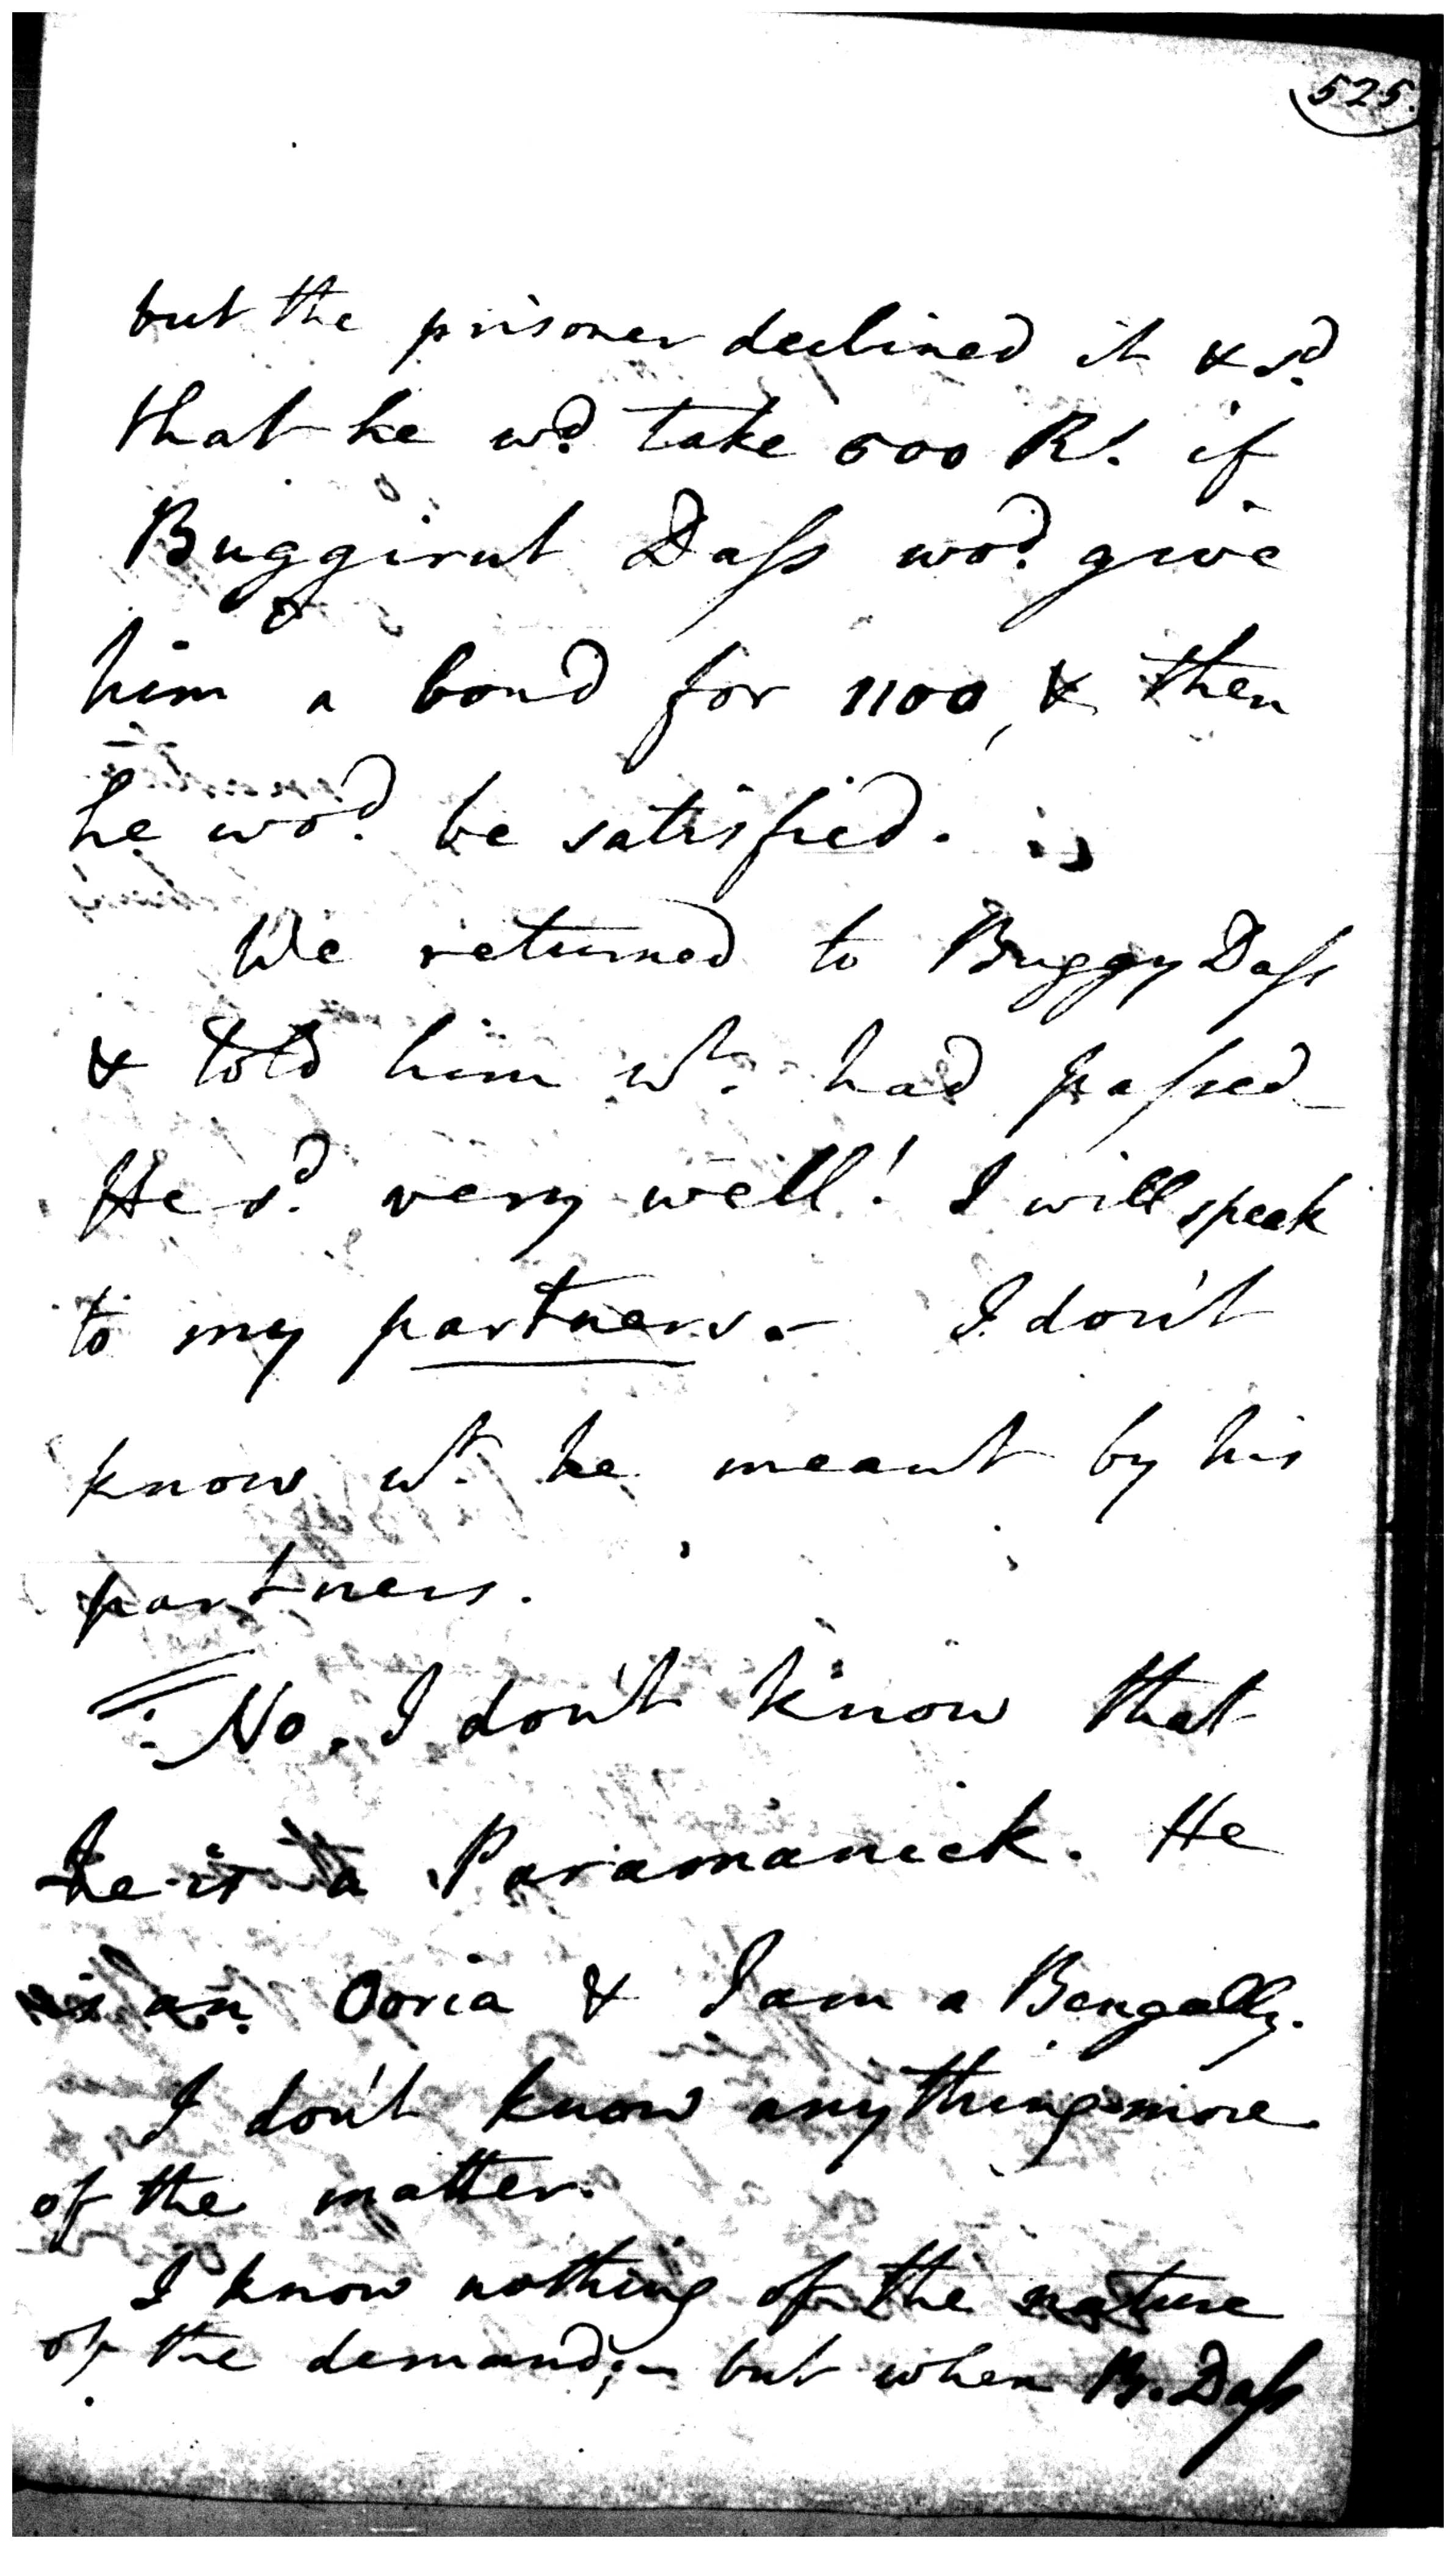 525.
but the prisoner declined it & sd.
that he wd. take 600 Rs. if
Buggirut Dass wod. give
him a bond for 1100, & then
he wod. be satisfied.
We returned to Buggy Dass
& told him wt. had passed_
He sd. very well! I will speak
to my partners.— I don't
know wt. he meant by his
partners.
No. I don't know that
he is a Paramanick. He
is an Ooria & I am a Bengally.
I don't know any thing more
of the matter.
I know nothing of the nature
of the demand;— but when B. Dass